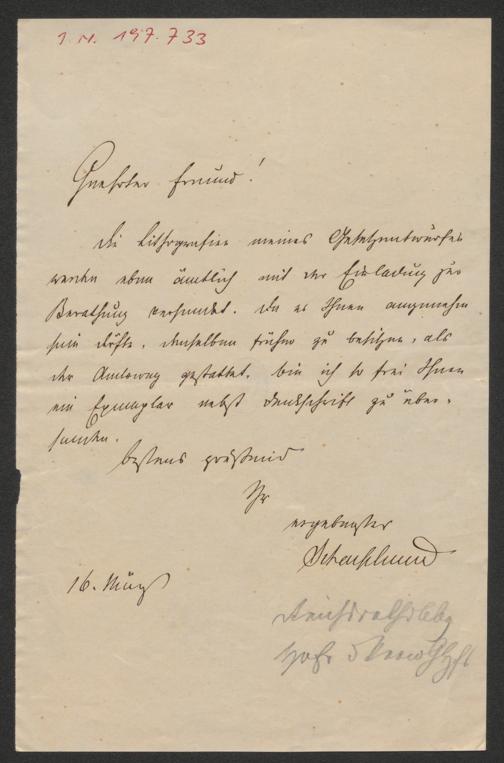 I. N. 197.733
Geehrter Freund!
Die Lithografien meines Gesetzentwurfes
werden eben ämtlich mit der Einladung zur
Berathung versendet. Da es Ihnen angenehm
sein dürfte, denselben früher zu besitzen, als
der Amtsweg gestattet, bin ich so frei Ihnen
ein Exemplar nebst Denkschrift zu über-
senden.
Bestens grüßend
Ihr
ergebenster
16. März
Reichsrathsabg